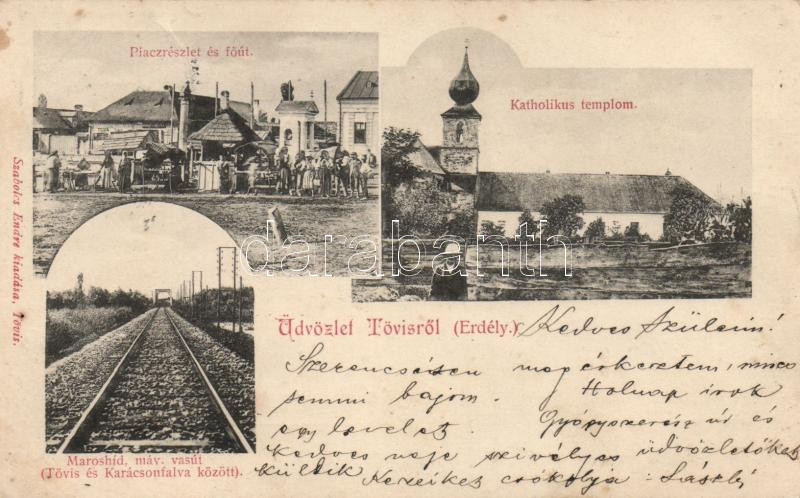 Piaczrészlet és főút.
Katholikus templom.
Szabolcs Endre kiadása, Tövis.
darabanth
Maroshíd, máv. vasút
(Tövis és Karácsonfalva között).
Üdvözlet Tövisről (Erdély.)
Kedves Szüleim!
Szerencsésen megérkeztem, nincs
semmi bajom. Holnap írok
egy levelet. Gyógyszerész úr és
kedves neje szivélyes üdvözletöket
küldik Kezeiket csókolja László